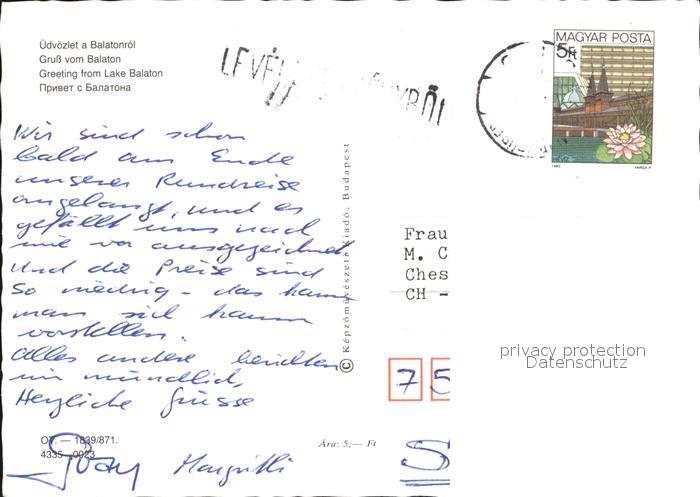 Üdvözlet a Balatonról
Gruß vom Balaton
Greeting from Lake Balaton
Привет с Балатона
MAGYAR POSTA
5Ft
Wir sind schon
bald am Ende
unserer Rundreise
angelangt, und es
gefällt uns nach
wie vor ausgezeichnet
und die Preise sind
so niedrig - das kann
man sich kaum
vorstellen.
Alles andere berichten
wir mündlich,
Herzliche Grüsse
Margritli
OT. — 1839/871.
4335—0023
Ára: 5,— Ft
© Képzőművészeti Kiadó, Budapest
Frau
M. C
Ches
CH -
75
S
privacy protection
Datenschutz